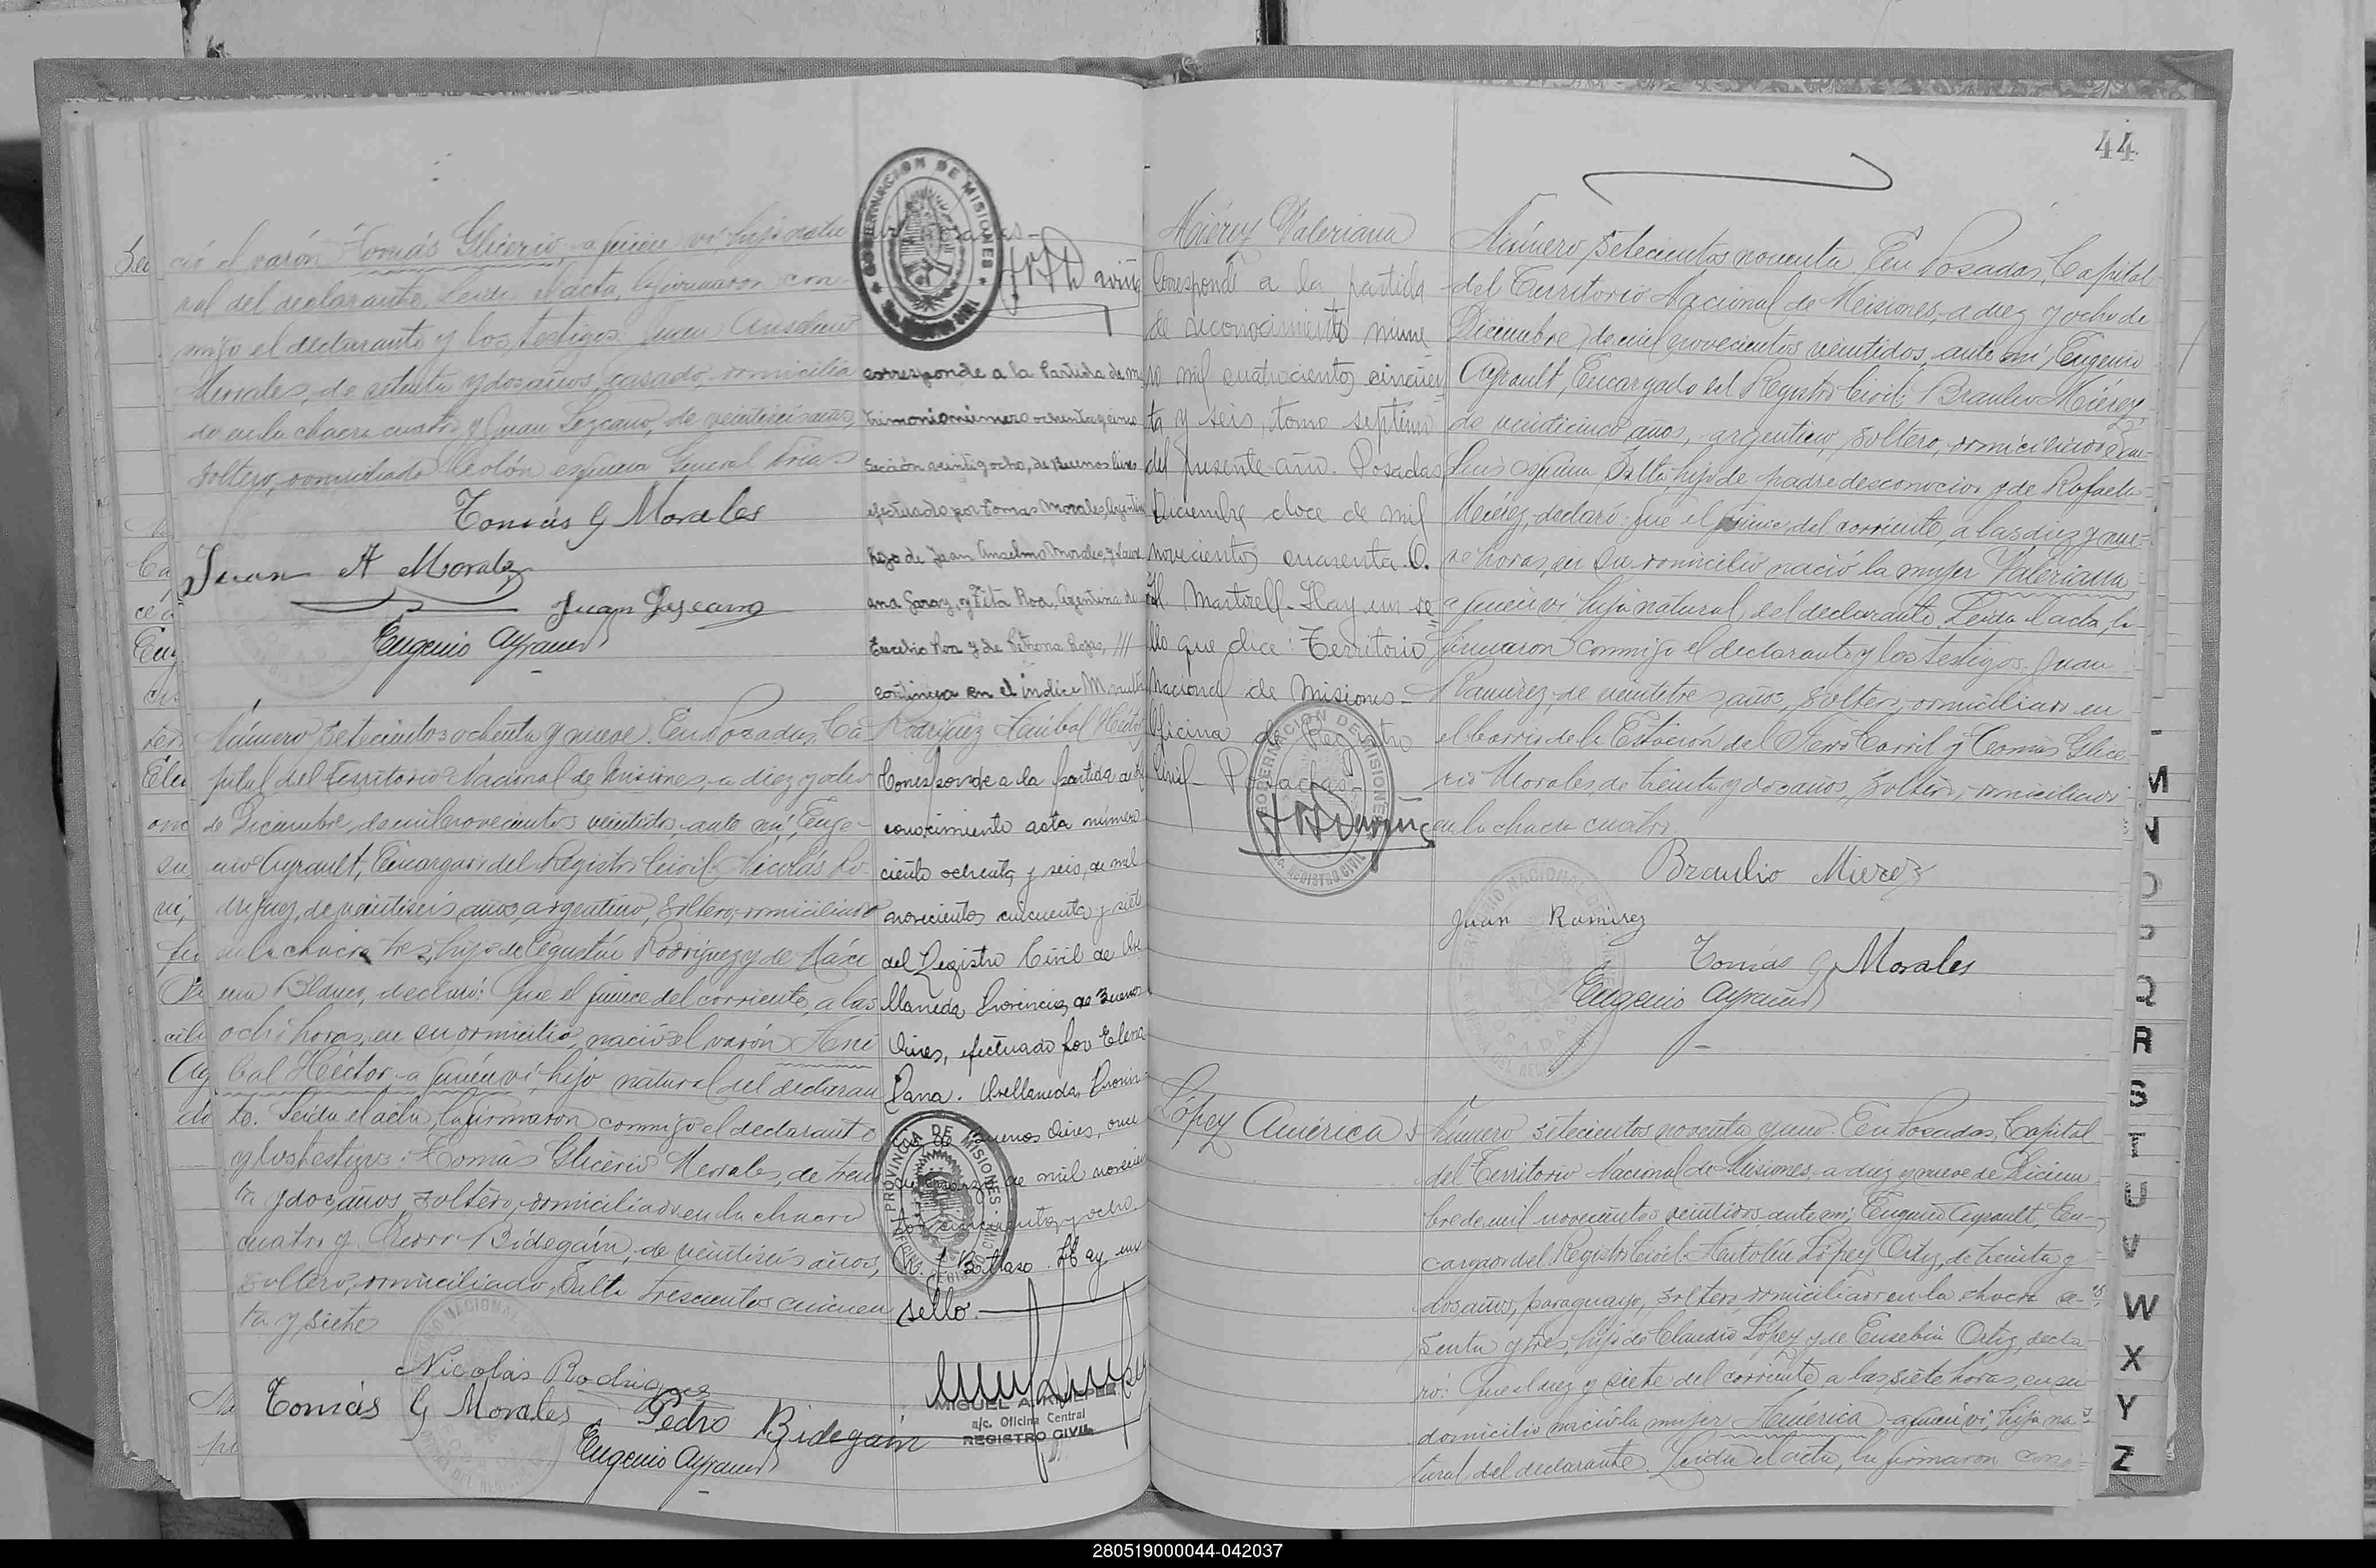 ció el varón Tomás Glicerio, a quien vi, hijo natu
ral del declarante. Leida el acta, la firmaron con
migo el declarante y los testigos Juan Anselmo
Morales, de setenta y dos años, casado domicilia
do en la chacra cuatro y Juan Lezcano, de veintiseis años,
soltero, domiciliado Colón esquina General Frias
Tomás G Morales
Juan A Morales
Juan Lezcano
Eugenio Ayrault
GOBERNACION DE MISIONES
corresponde a la Partida de ma
trimonio número ochenta y cinco
Sección veintiocho, de Buenos Aires
efectuado por Tomas Morales, Argentino
hijo de Juan Anselmo Morales, y
ana Garay, y Tita Roa, Argentina de
Roa y de Petrona Rojas, ///
continua en el indice M. vuelta
Número setecientos ochenta y nueve. En Posadas, Ca
pital del Territorio Nacional de Misiones, a diez y ocho
de Diciembre, de mil novecientos veintidos, ante mí, Euge
nio Ayrault, Encargado del Registro Civil: Nicolás Ro
driguez, de veintiseis años, argentino, soltero, domiciliado
en la chacra tres, hijo de Agustín Rodriguez y de Máxi
ma Blanco, declaró: Que el quince del corriente, a las
ocho horas, en su domicilio, nació el varón Aní
bal Héctor, a quien vi, hijo natural del declaran
te. Leida el acta, la firmaron conmigo el declarante
y los testigos: Tomás Glicerio Morales, de trein
ta y dos años, soltero, domiciliado en la chacra
cuatro y Pedro Bidegain, de veintiseis años,
soltero, domiciliado Salta trescientos cincuen
ta y siete
Nicolás Rodriguez
Tomás G Morales
Pedro Bidegain
Eugenio Ayrault
Rodriguez Anibal Héctor
Corresponde a la partida de re
conocimiento acta número
ciento ochenta y seis, de mil
novecientos cincuenta y siete
del Registro Civil de Ave
llaneda Provincia de Buenos
Aires, efectuado por Elena
Pana. Avellaneda, Provin
cia de Buenos Aires, once
de marzo de mil novecien
tos cincuenta y ocho.
Hay un
sello.
PROVINCIA DE MISIONES
MIGUEL A. KNIEPER
a/c. Oficina Central
REGISTRO CIVIL
44
Miérez Valeriana
Corresponde a la partida
de reconocimiento núme
ro mil cuatrocientos cincuen
ta y seis, tomo septimo
del presente año. Posadas
Diciembre doce de mil
novecientos cuarenta. O.
Martorell - Hay un se
llo que dice: Territorio
Nacional de Misiones -
Oficina de Registro
Civil - Posadas -
GOBERNACION DE MISIONES
REGISTRO CIVIL
Número setecientos noventa. En Posadas, Capital
del Territorio Nacional de Misiones, a diez y ocho de
Diciembre, de mil novecientos veintidos, ante mí, Eugenio
Ayrault, Encargado del Registro Civil: Braulio Miérez,
de veinticinco años, argentino, soltero, domiciliado San
Luis esquina Salta, hijo de padre desconocido y de Rafaela
Miérez, declaró: que el quince del corriente, a las diez y nue-
ve horas, en su domicilio nació la mujer Valeriana
a quien vi, hija natural del declarante. Leida el acta, la
firmaron conmigo el declarante y los testigos. Juan
Ramirez, de veintitres años, soltero, domiciliado en
el barrio de la Estación del Ferro Carril y Tomás Glice-
rio Morales, de treinta y dos años, soltero, domiciliado
en la chacra cuatro.
Braulio Mierez
Juan Ramirez
Tomás G Morales
Eugenio Ayrault
López América
Número setecientos noventa y uno. En Posadas, Capital
del Territorio Nacional de Misiones, a diez y nueve de Diciem
bre de mil novecientos veintidos, ante mí, Eugenio Ayrault, En-
cargado del Registro Civil: Antolín López Ortiz, de treinta y
dos años, paraguayo, soltero, domiciliado en la chacra se-
senta y tres, hijo de Claudio López y de Eusebia Ortiz, decla
ró: Que el diez y siete del corriente, a las siete horas, en su
domicilio nació la mujer América a quien vi, hija na-
tural del declarante. Leida el acta, la firmaron con
M
N
O
P
Q
R
S
T
U
V
W
X
Y
Z
280519000044-042037